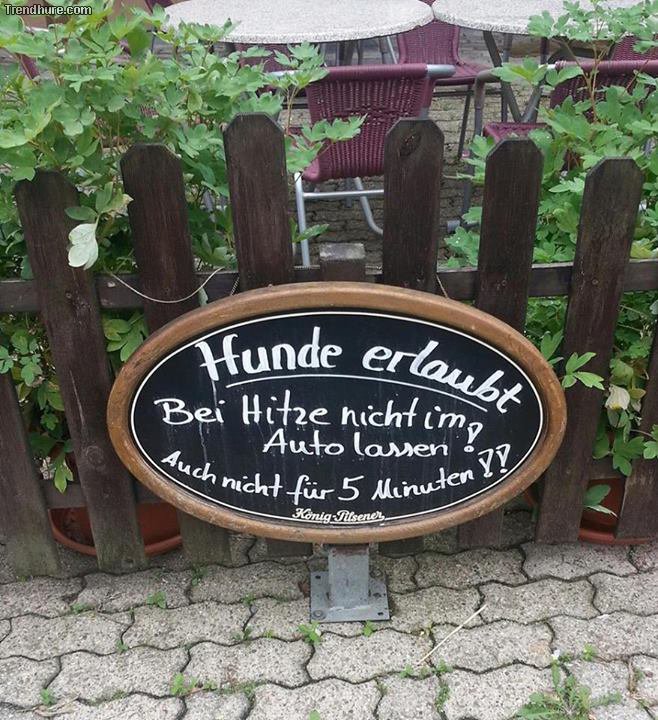 Trendhure.com
Hunde erlaubt
Bei Hitze nicht im
Auto lassen!
Auch nicht für 5 Minuten!!
König-Pilsener